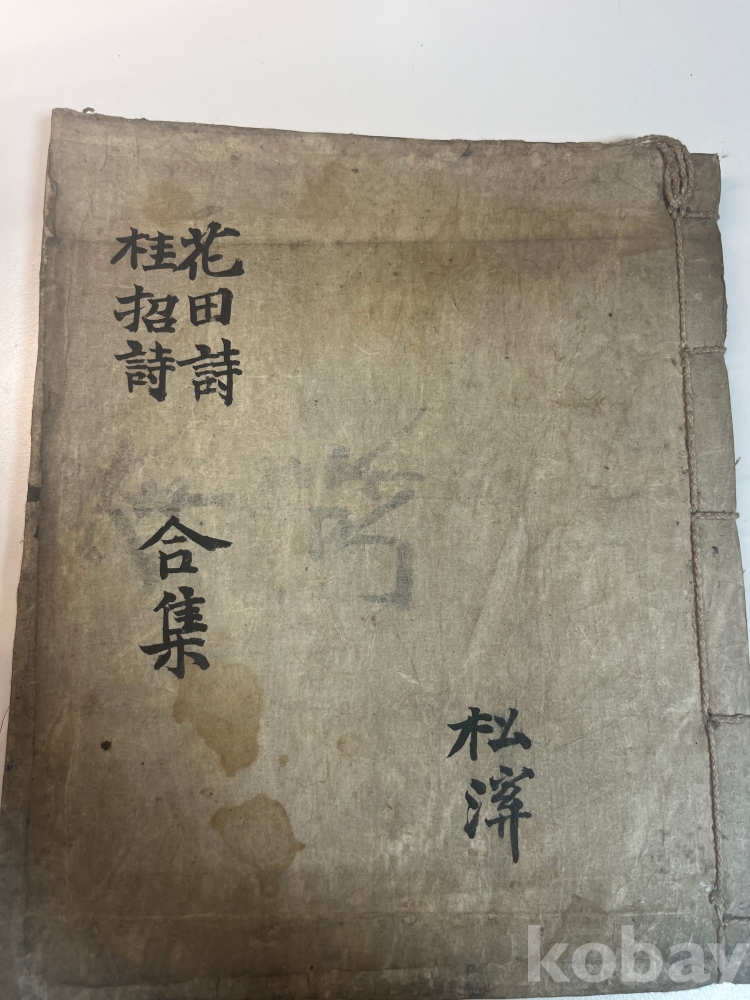 花田詩
桂招詩
合集
松
kobay